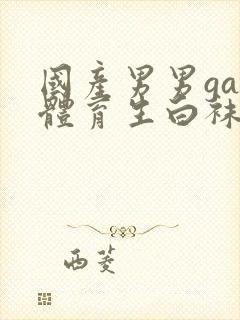 國產男男ga
體育生白袜
西菱